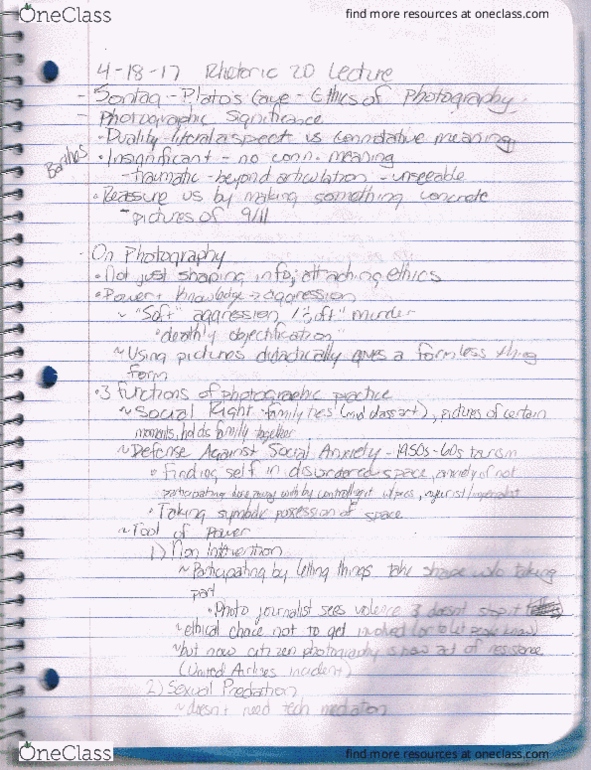 OneClass
find more resources at oneclass.com
4-18-17 Rhetoric 20 Lecture
- Sontag - Plato's Cave - Ethics of Photography
- Photographic Significance
- Duality - literal aspect vs connotative meaning
Barthes
• Insignificant - no conn. meaning
- traumatic - beyond articulation - unseeable
• Reassure us by making something concrete
- pictures of 9/11
- On Photography
• Not just shaping info; attaching ethics
• Power + Knowledge → aggression
~ "Soft" aggression / "soft" murder
• "deathly objectification"
~ Using pictures didactically gives a formless thing
form
• 3 functions of photographic practice
~ Social Right - family ties (mid class art), pictures of certain
moments, holds family together
~ Defense Against Social Anxiety - 1950s-60s tourism
• Finding self in disordered space, anxiety of not
participating done away with by controlling it w/
• Taking symbolic possession of space
~ Tool of Power
1) Non Intervention
~ Participating by letting things take shape w/o taking
part
• Photo journalist sees violence & doesn't stop it
~ ethical choice not to get involved (or to let people know)
~ but now citizen photography is now act of resistance
(United Airlines incident)
2) Sexual Predation
~ doesn't need tech mediation
OneClass
find more resources at oneclass.com